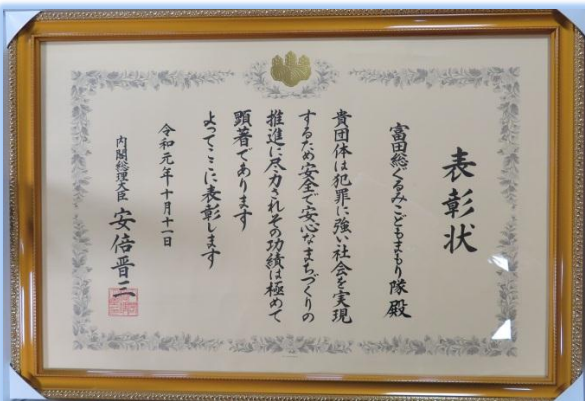 表彰状
富田総ぐるみこどもまもり隊殿
貴団体は犯罪に強い社会を実現
するため安全で安心なまちづくりの
推進に尽力されその功績は極めて
顕著であります
よってここに表彰します
令和元年十月十一日
内閣総理大臣 安倍晋三